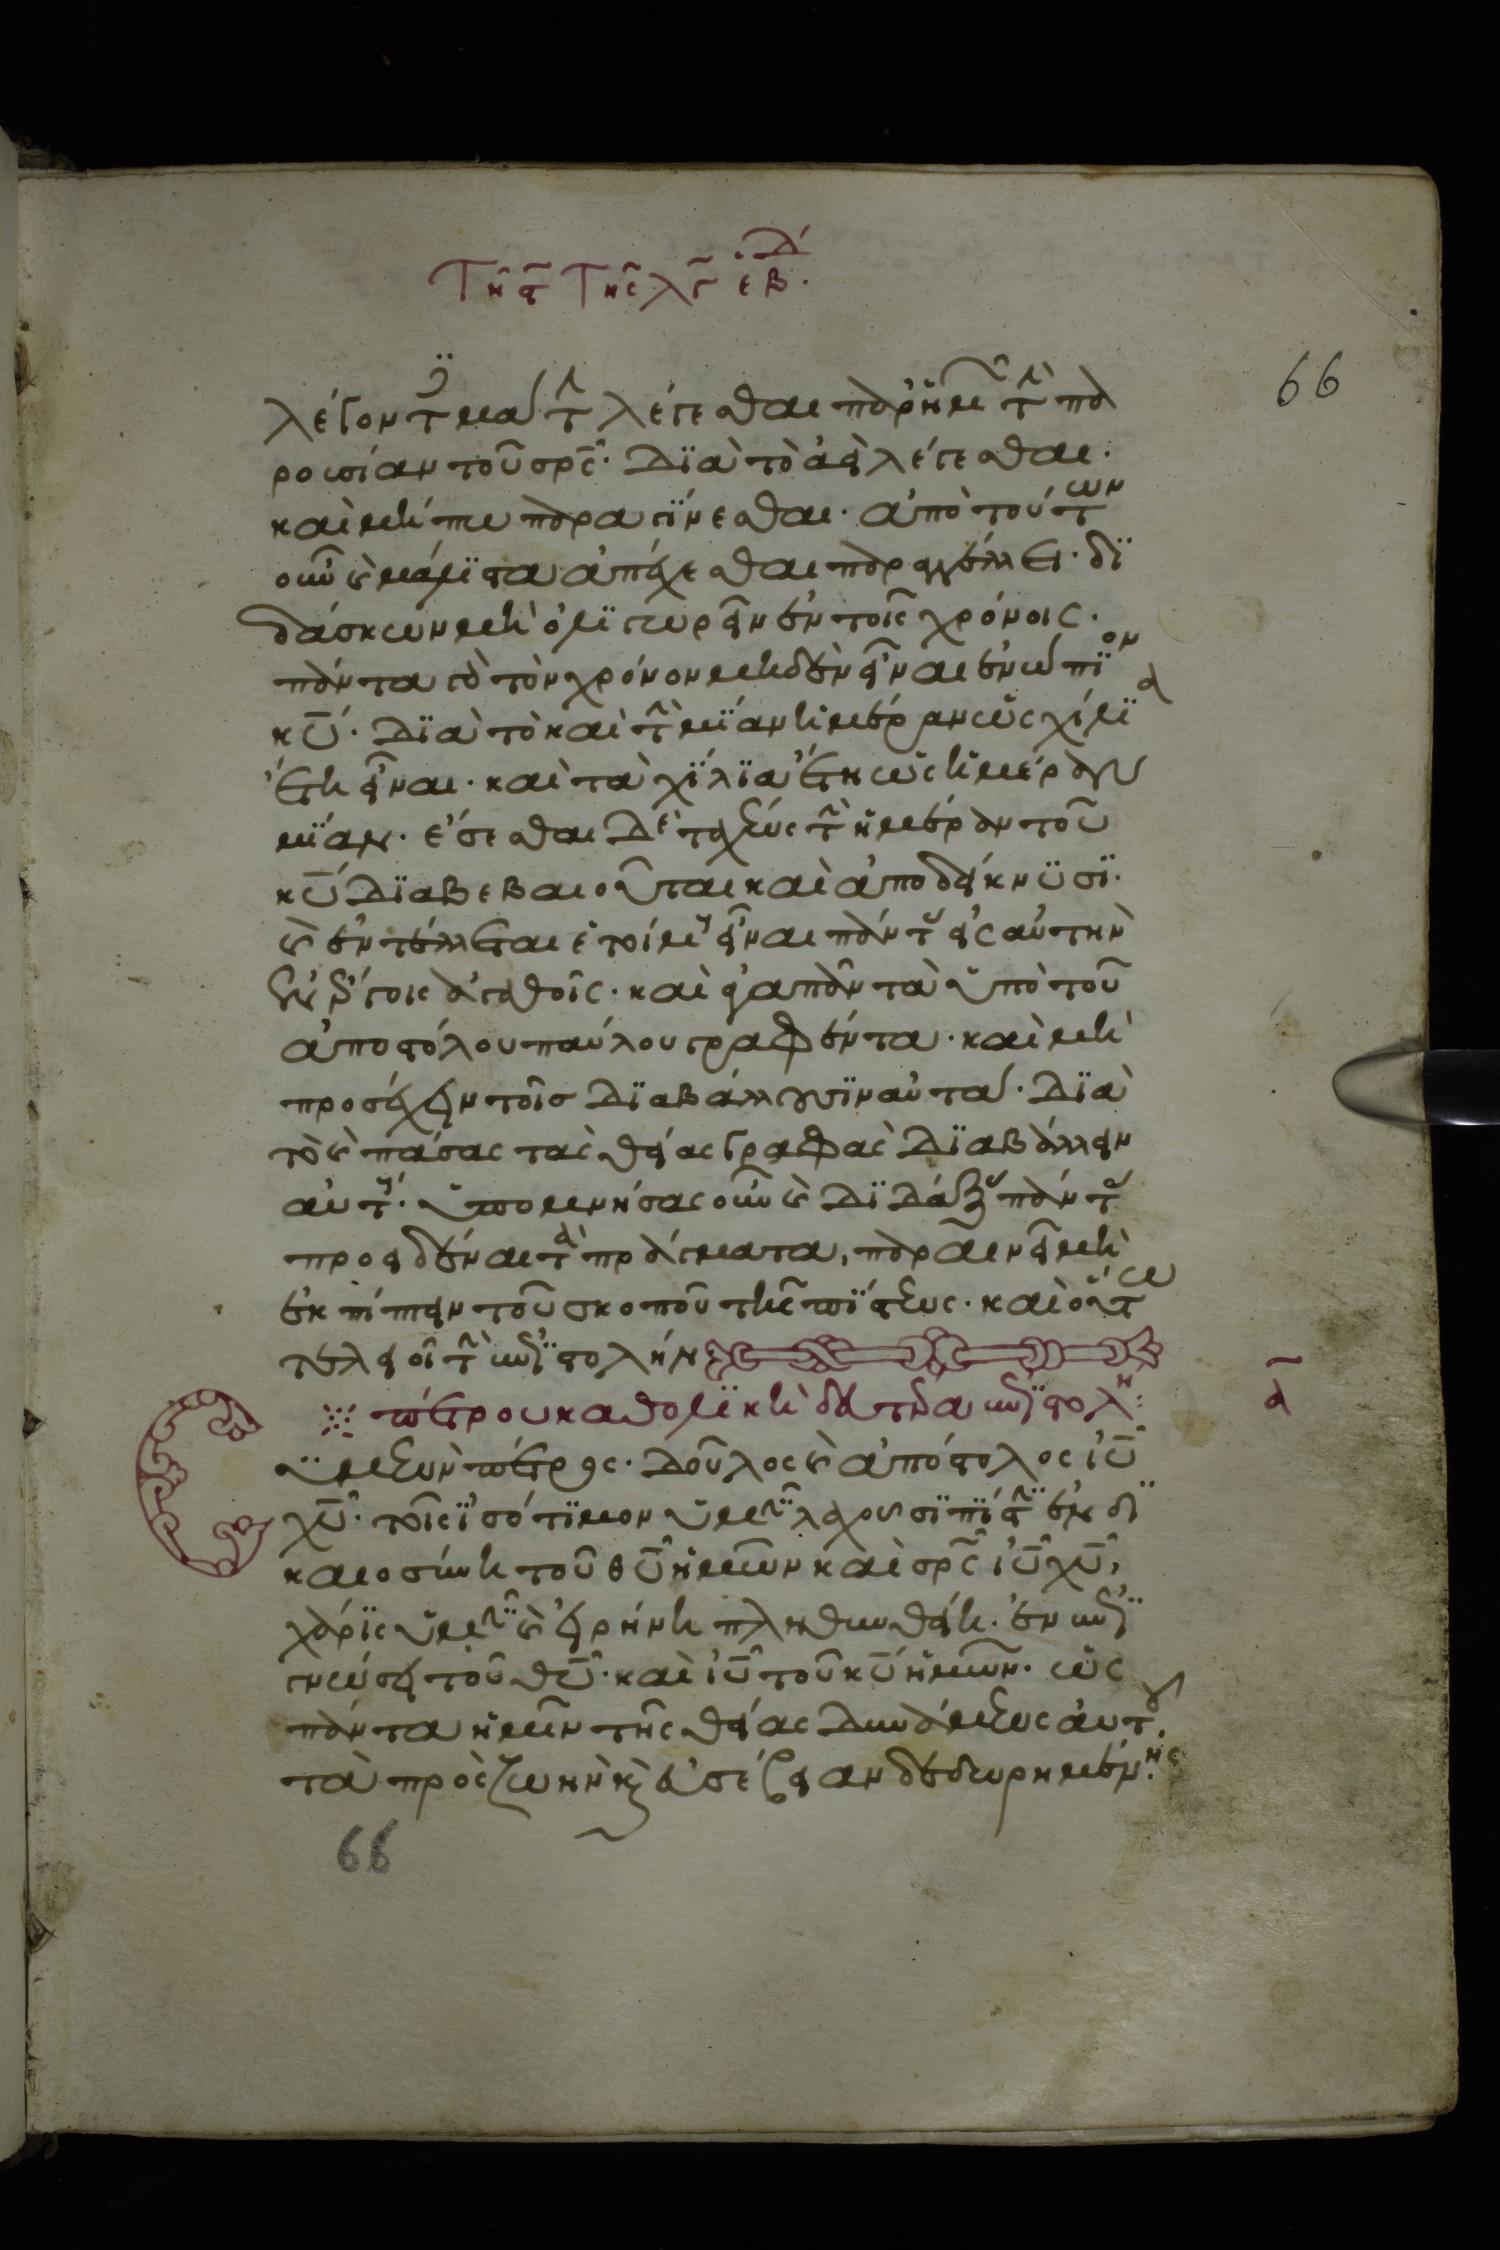 Τῆ ϛ̄ τῆς λγ̄ ἑβ. δ
66
λέγοντ μα τ λέγεσθαι παρ' ἡμ τ πα
ρουσίαν του σρς· διὰ το ἀεὶ λέγεσθαι·
καὶ μήπω παραγίνεσθαι· ἀπὸ τούτων
οὖν καὶ μάλιστα ἀπέχεσθαι παραγγέλλει· δι
δάσκων μὴ ὀλιγωρεῖν ἐν τοῖς χρόνοις·
πάντα γὰρ τὸν χρόνον μηδὲν εἶναι ἐνώπιον
κυ· διὰ τὸ καὶ τ μίαν ἡμέραν ὡς χίλια
ἔτη εἶναι· καὶ τὰ χίλια ἔτη ὡς ἡμέραν
μίαν· ἔσεσθαι δὲ ταχέως τ ἡμέραν τοῦ
κυ διαβεβαιοῦται καὶ ἀποδείκνυσι·
καὶ ἐντέλλεται ἑτοίμους εἶναι πάντας εἰς αὐτὴν
ἐν ἔργοις ἀγαθοῖς· καὶ ἀγαπᾶν τὰ ὑπὸ τοῦ
ἀποστόλου παύλου γραφέντα· καὶ μὴ
προσέχειν τοῖς διαβάλλουσιν αὐτά· διὰ
τὸ καὶ πάσας τὰς θείας γραφὰς διαβάλλειν
αὐτούς· ὑπομνήσας οὖν καὶ διδάξας πάντας
προειδέναι τὰ πράγματα, παραινεῖ μὴ
ἐκπίπτειν τοῦ σκοποῦ τῆς πίστεως· καὶ οὕτω
τελειοῖ τ ἐπιστολήν
πέτρου καθολικὴ δευτέρα ἐπιστολή:
ᾱ
Συμεὼν πέτρος· δοῦλος καὶ ἀπόστολος ιυ
χυ· τοῖς ἰσότιμον ὑμῖν λαχοῦσι πίστιν ἐν δι
καιοσύνη τοῦ θυ ἡμῶν καὶ σρς ιυ χυ,
χάρις ὑμῖν καὶ εἰρήνη πληθυνθείη· ἐν ἐπι
γνώσει τοῦ θυ· καὶ ιυ τοῦ κυ ἡμῶν· ὡς
πάντα ἡμῖν τῆς θείας δυνάμεως αὐτοῦ.
τὰ πρὸς ζωὴν καὶ εὐσέβειαν δεδωρημένης
66